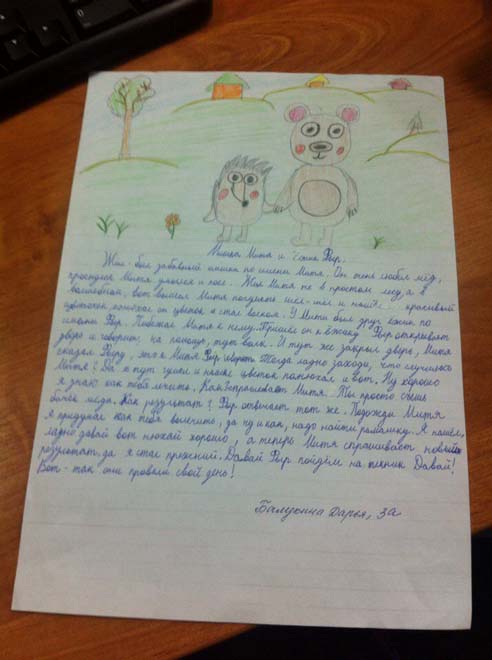 Мишка Митя и Ёжик Фыр.
Жил-был забавный мишка по имени Митя. Он очень любил мёд,
проснулся Митя умылся и поел. Жил Митя не в простом лесу, а в
волшебном, вот вышел Митя погулять шел-шел и нашёл... красивый
цветочек понюхал он цветок и стал волком. У Мити был друг ёжик по
имени Фыр. Побежал Митя к нему. Пришёл он к ёжику Фыр открывает
дверь и говорит: на помощь, тут волк. И тут же закрыл дверь, Митя
сказал Фыру, это я Митя Фыр Тогда ладно заходи, что случилось
Митя? Да я тут гулял и нашёл цветок понюхал и вот. Ну хорошо
я знаю как тебя лечить. Как спрашивает Митя. Ты просто съешь
бочек мёда. Как результат? Фыр отвечает тот же. Подожди Митя
я придумал как тебя вылечить, да ну и как, надо найти ромашку. Я нашёл,
ладно давай вот нюхай хорошо, а теперь Митя спрашивает
результат, да я стал прежний. Давай Фыр пойдём на пикник Давай!
Вот-так они провели свой день!
Дарья, 3а